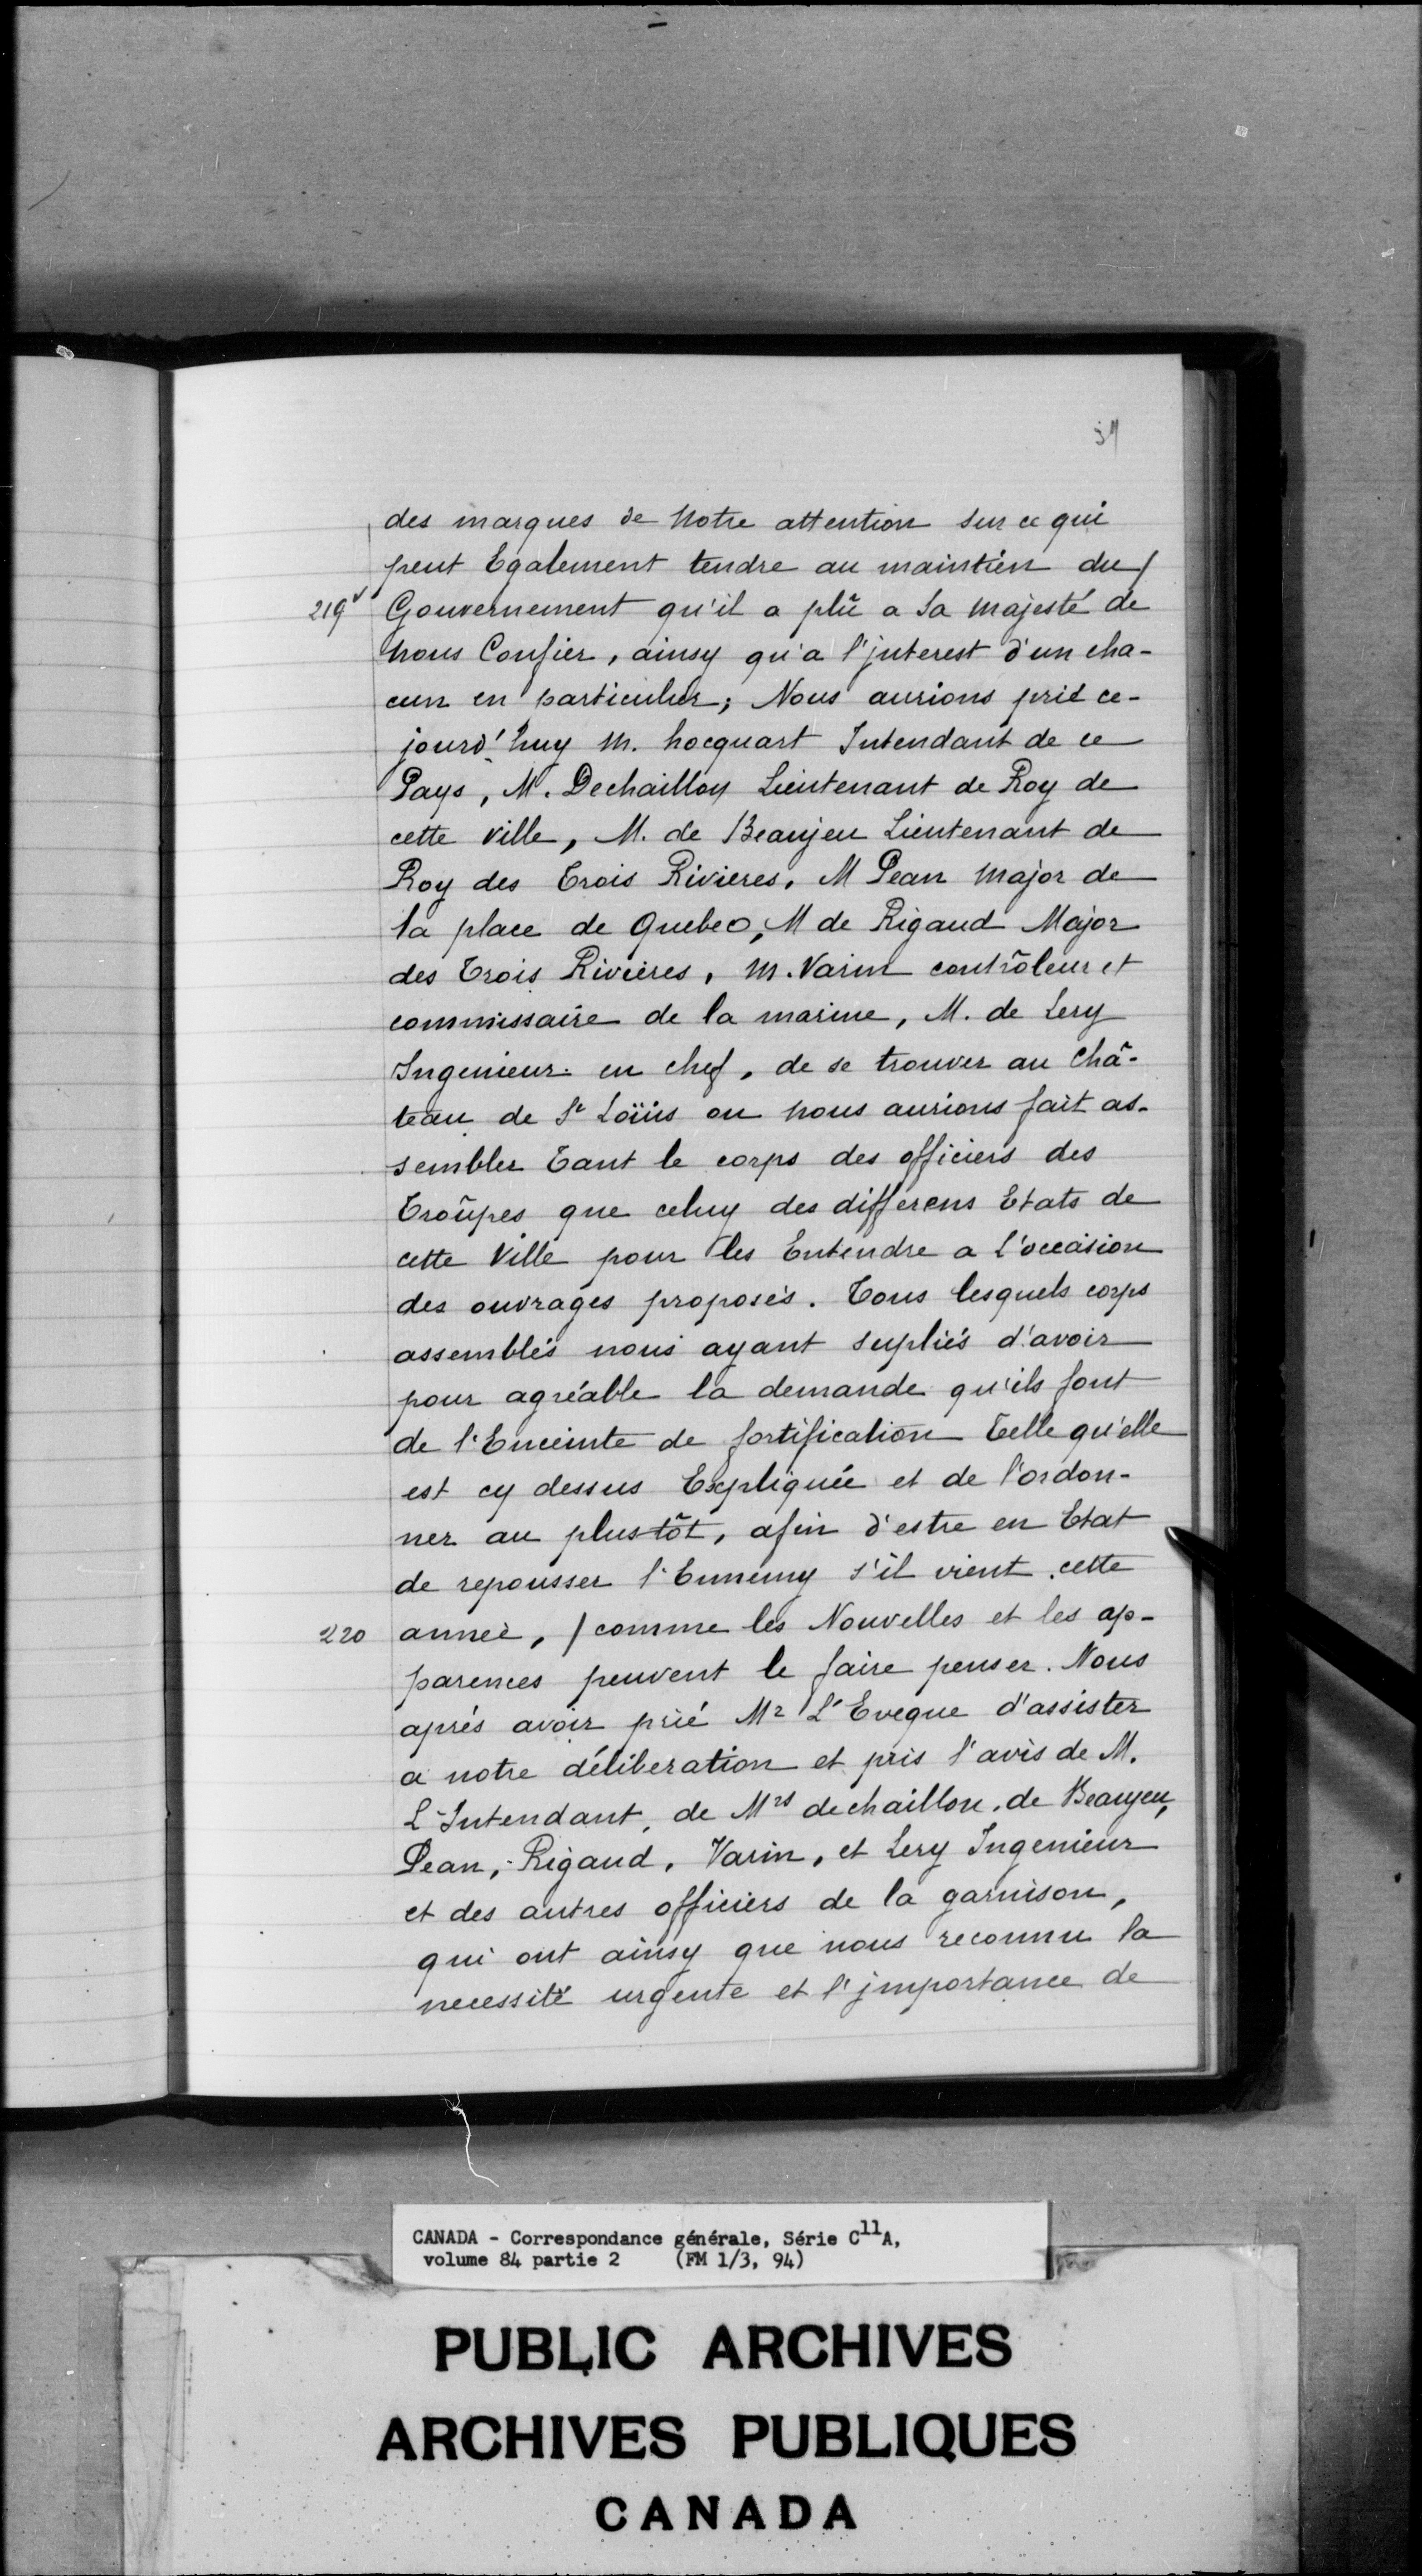 des marques de Notre attention sur ce qui
peut Egalement tendre au maintien du /
219v Gouvernement qu'il a plû a Sa Majesté de
nous Confier, ainsy qu'a l'jnterest d'un cha-
cun en particulier; Nous aurions prié ce-
jourd'huy M. hocquart Intendant de ce
Pays, M. Dechaillon Lieutenant de Roy de
cette Ville, M. de Beaujeu Lieutenant de
Roy des Trois Rivieres, M Pean Major de
la place de Quebec, M de Rigaud Major
des Trois Rivieres, M. Varin contrôleur et
commissaire de la marine, M. de Lery
Ingenieur en chef, de se trouver au Châ-
teau de St Loüis ou nous aurions fait as-
sembler Tant le corps des officiers des
Troûpes que celuy des differens Etats de
cette Ville pour les Entendre a l'occasion
des ouvrages proposés. Tous lesquels corps
assemblés nous ayant supliés d'avoir
pour agréable la demande qu'ils font
de l'Enceinte de fortification Telle qu'elle
est cy dessus Expliquée et de l'ordon-
ner au plustôt, afin d'estre en Etat
de repousser l'Ennemy s'il vient cette
220 année, / comme les Nouvelles et les ap-
parences peuvent le faire penser. Nous
aprés avoir prié Mr L'Eveque d'assister
a notre déliberation et pris l'avis de M.
L'Intendant, de Mrs dechaillon, de Beaujeu,
Pean, Rigaud, Varin, et Lery Ingenieur
et des autres officiers de la garnison,
qui ont ainsy que nous reconnu la
necessité urgente et l'jmportance de
CANADA - Correspondance générale, Série C11A,
volume 84 partie 2 (FM 1/3, 94)
PUBLIC ARCHIVES
ARCHIVES PUBLIQUES
CANADA